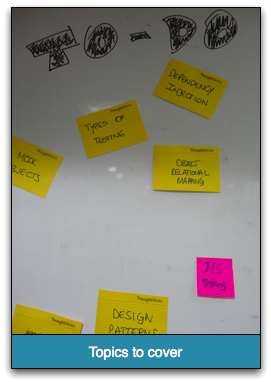 TO-DO
ThoughtWorks
DEPENDENCY
INJECTION
ThoughtWorks
TYPES OF
TESTING
MOCK
OBJECTS
ThoughtWorks
OBJECT
RELATIONAL
MAPPING
J/S
Testing
ThoughtWorks
DESIGN
PATTERNS
ThoughtWorks
Topics to cover